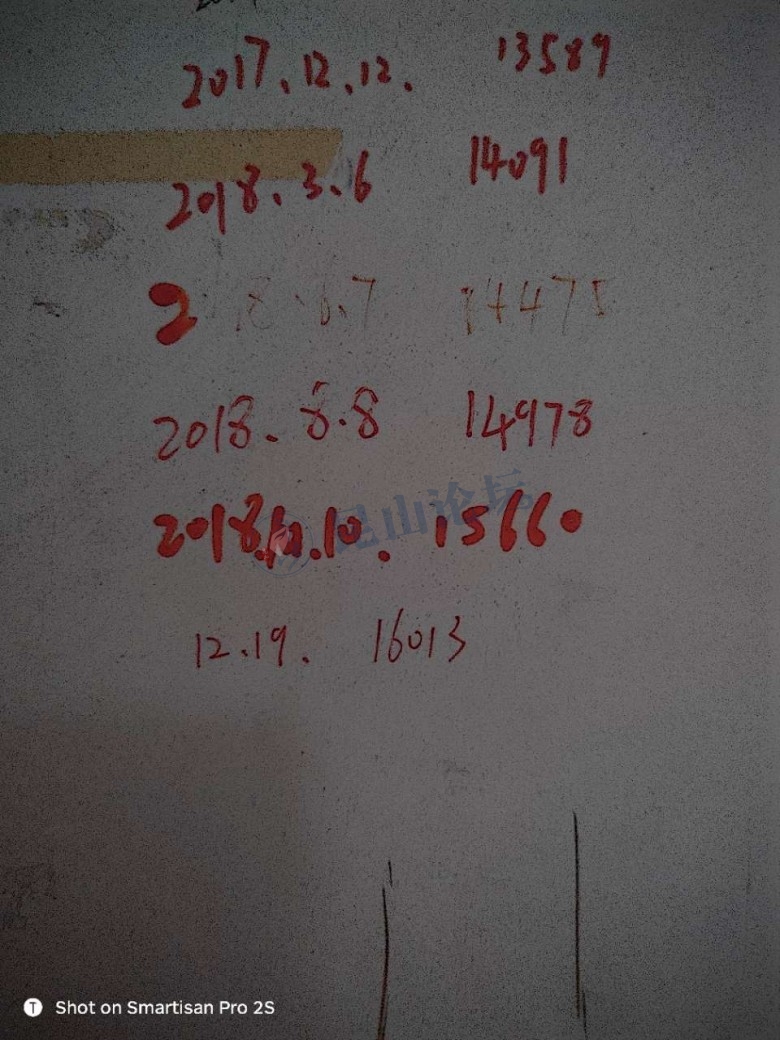 2017.12.12. 13589
2018.3.6 14091
2 8.6.7 14475
2018.8.8 14978
2018.10.10. 15660
昆山论坛
12.19. 16013
T Shot on Smartisan Pro 2S